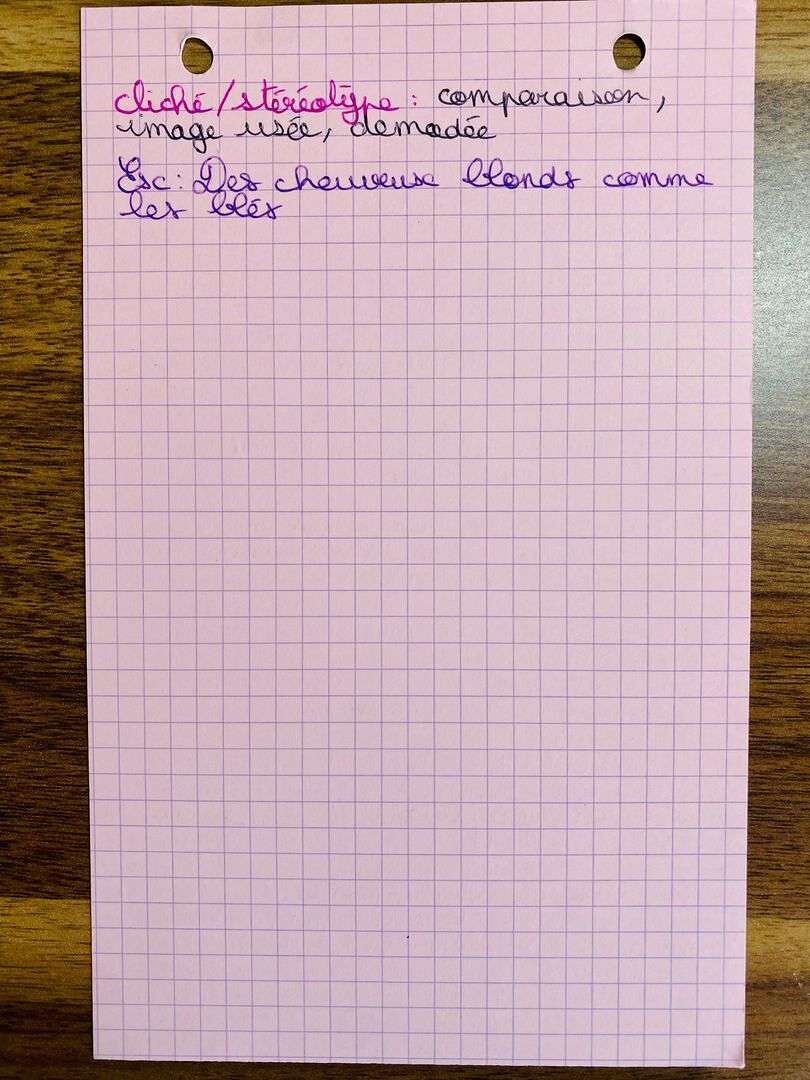 cliché/stéréotype : comparaison,
image usée, demodée
Ex : Des cheveux blonds comme
les blés